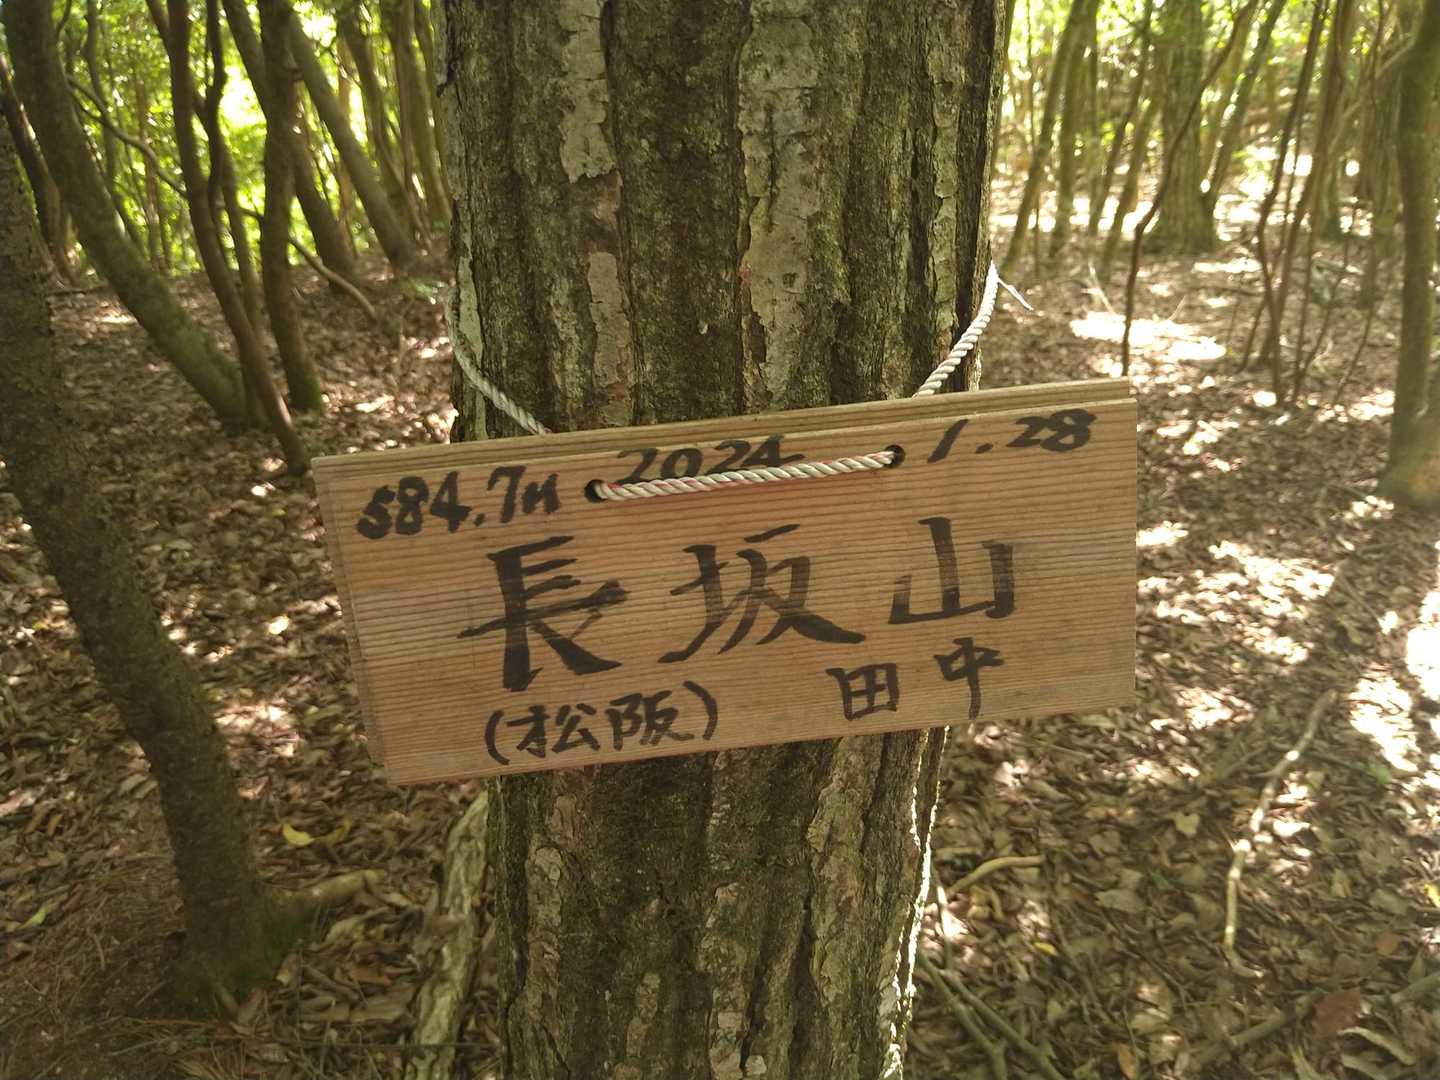 584.7m 2024 1.28
長坂山
(松阪) 田中